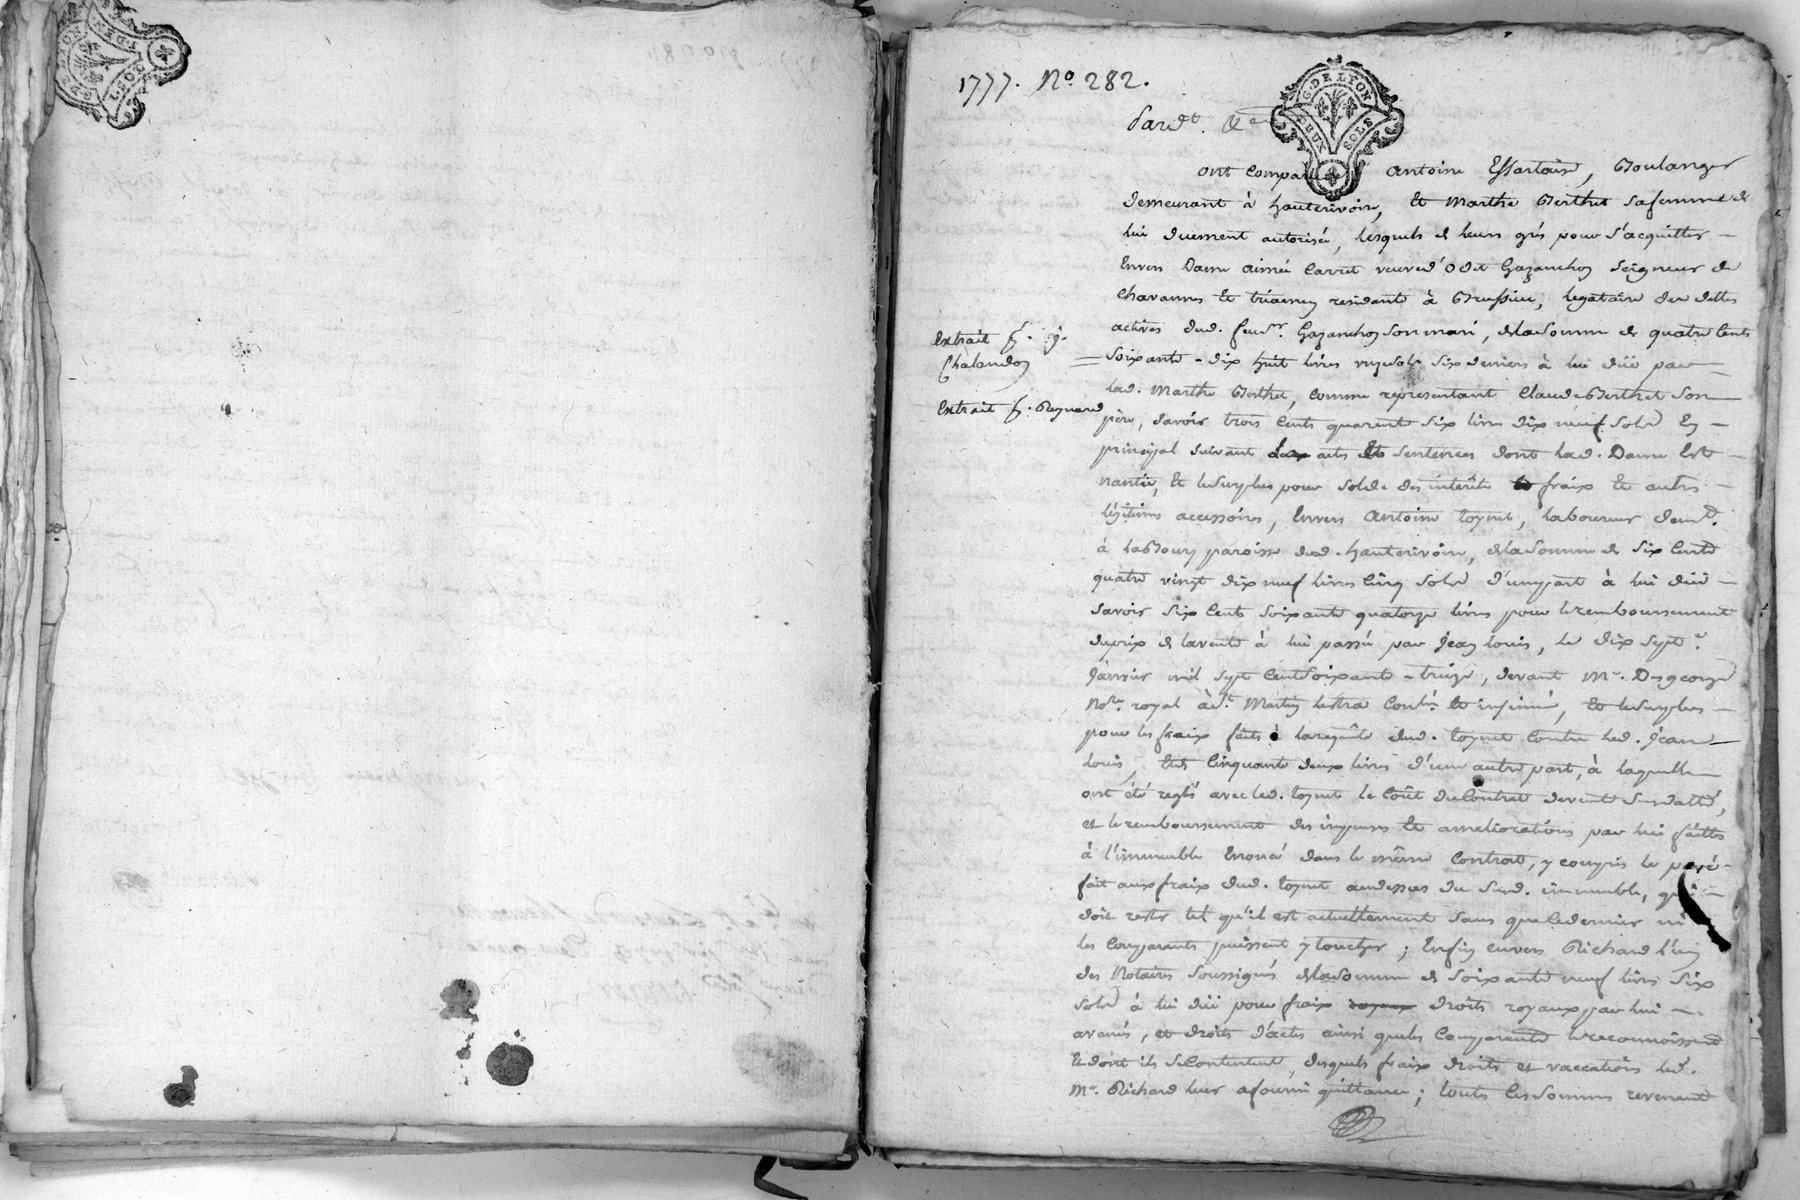 1777. No. 282.
G. DE LYON
DEUX SOLS
Pardt. &a
ont comparu Antoine Essartaire, Boulanger
demeurant à hauterivoire, et Marthe Berthet sa femme de
lui duement autorisée, lesquels de leurs grés pour s'acquitter
Envers Dame aimée Carret veuve d'Odet Gazanchon Seigneur de
Chavannes et résidante à Brussieu, legataire des dettes
actives dud. feu sr. Gazanchon son mari, de la Somme de quatre Cents
Soixante-dix huit livres Six deniers à lui düe par
lad. Marthe Berthet, comme représentant Claude Berthet Son
père, Savoir trois Cents quarente Six livres dix neuf Sols En
principal Suivant actes et Sentences dont lad. Dame Est
nantie, Et le Surplus pour Solde des intérêts fraix et autres
légitimes accessoires, Envers Antoine toynet, laboureur demt.
à la Boury paroisse dud. hauterivoire, de la Somme de Six Cents
quatre vingt dix neuf livres Cinq Sols d'une part à lui düe
Savoir Six Cents Soixante quatorze livres pour le remboursement
du prix de la vente à lui passée par Jean louis, le dix Sept
Janvier mil Sept Cent Soixante-treize, devant Me. Desgeorge
Nore. royal à St. Martin lestra Contrôlé et insinué, et le Surplus
pour les fraix faits à la requête dud. toynet Contre led. Jean
louis, Et de Cinquante deux livres d'une autre part, à laquelle
ont été reglés avec led. toynet le Coût du Contrat de vente Susdatté,
et le remboursement des impenses et ameliorations par lui faittes
à l'immeuble Enoncé dans le même Contrat, y compris le
fait aux fraix dud. toynet audessus du Susd. immeuble, qui
doit rester tel qu'il est actuellement Sans que ce dernier ni
les Comparants puissent y toucher ; Enfin envers Richard l'un
des Notaires Soussignés de la Somme de Soixante neuf livres Six
Sols à lui düe pour fraix droits royaux par lui
avancés, et droits d'actes ainsi que les Comparants le reconnoissent
Et dont ils Se Contentent, desquels fraix droits et vaccations led.
Me. Richard leur a fourni quittance ; touts les Sommes revenant
Extrait p. j.
Chalandon
Extrait p. Reynard